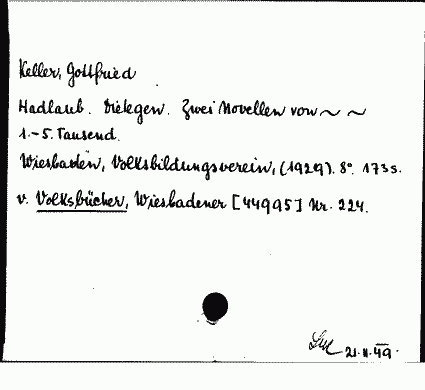 Keller, Gottfried
Hadlaub. Dietegen. Zwei Novellen von ~ ~
1.-5. Tausend.
Wiesbaden, Volksbildungsverein, (1929). 8°. 173 s.
v. Volksbücher, Wiesbadener [44995] Nr. 224.
21.II.49.